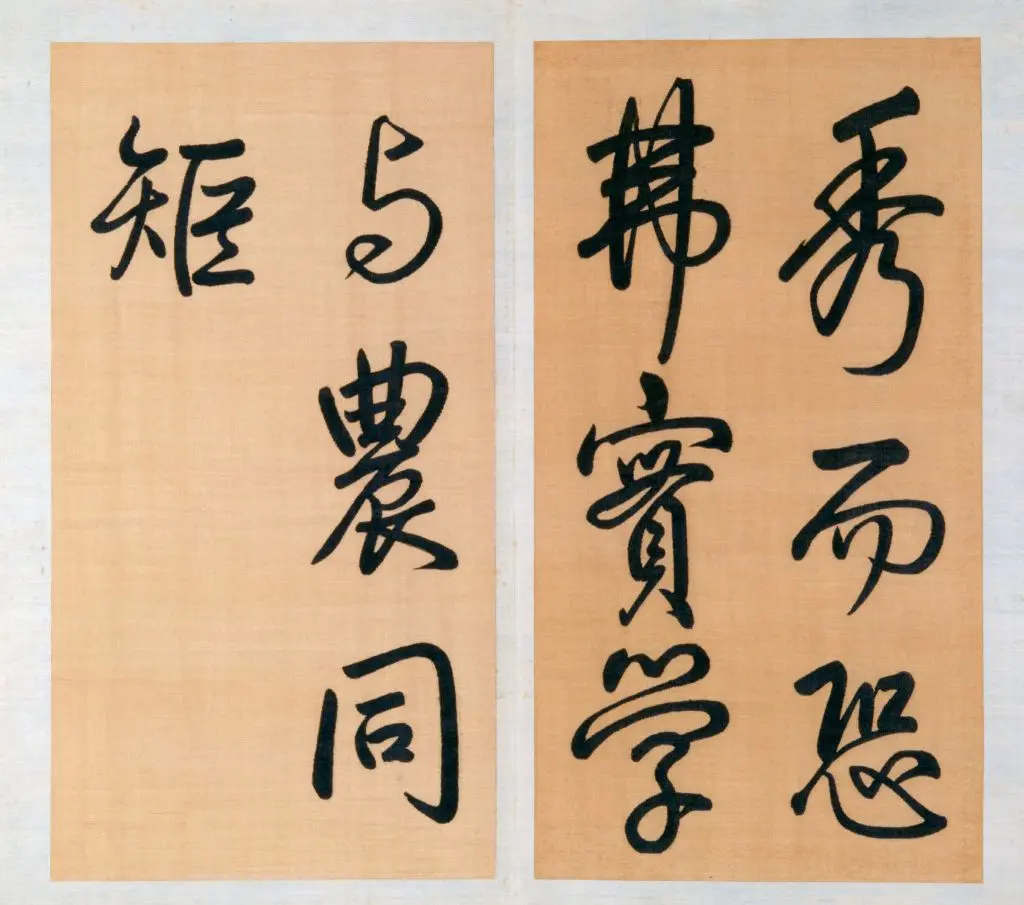 秀而恐
弗實學
与農同
矩